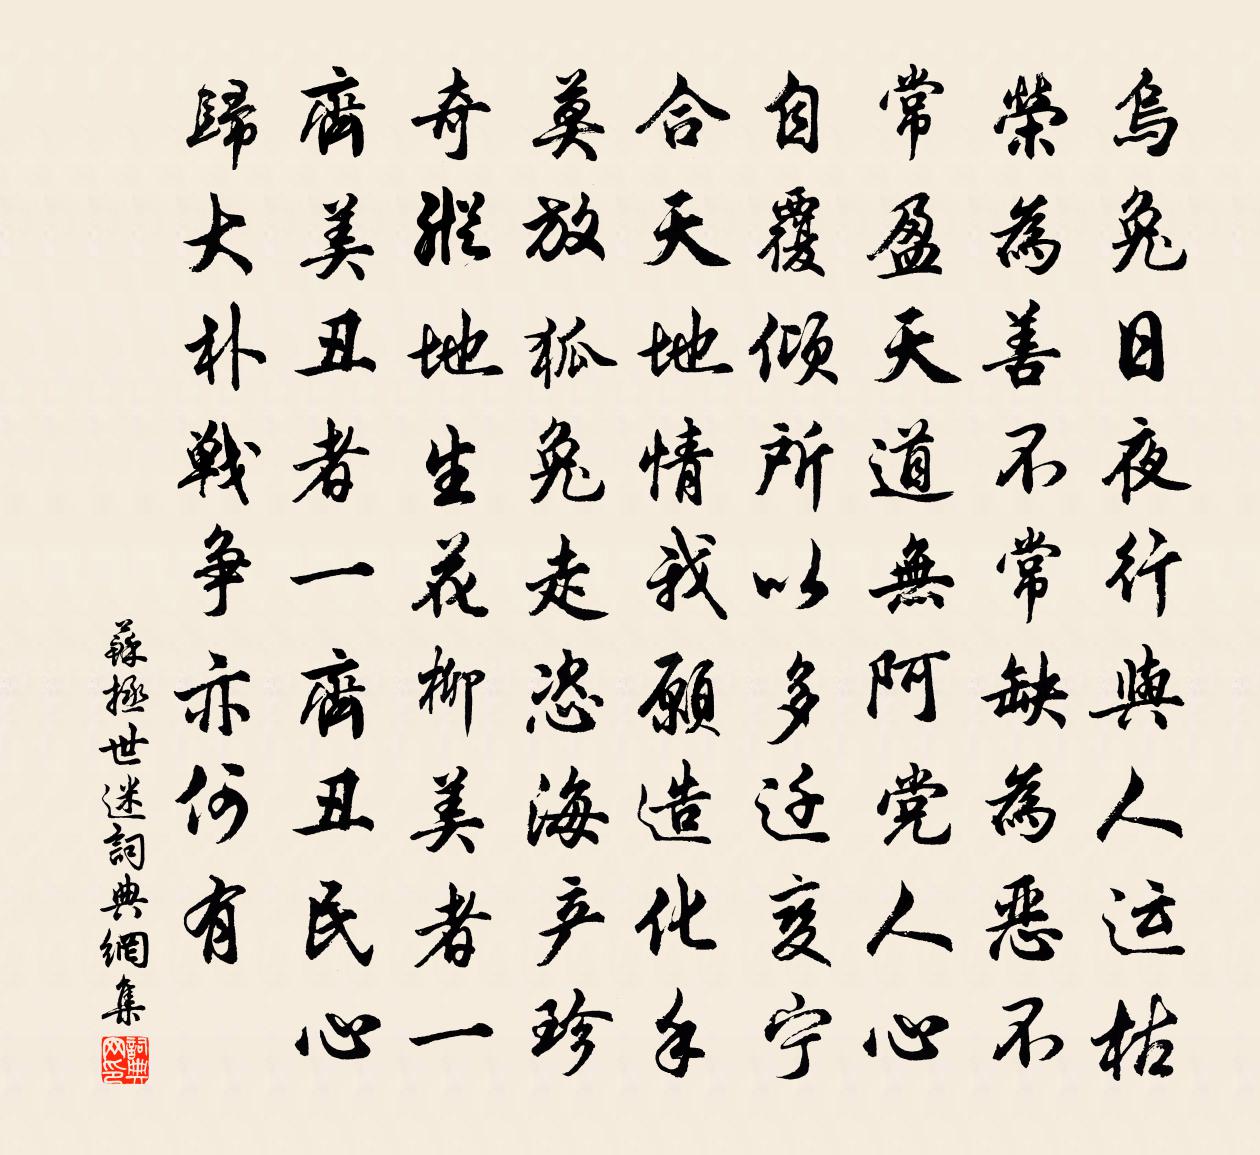 烏兔日夜行與人运枯
榮為善不常缺為惡不
常盈天道無阿党人心
自覆倾所以多迁变宁
合天地情我願造化手
莫放狐兔走恣海产珍
奇縱地生花柳美者一
齊美丑者一齊丑民心
歸大朴戰争亦何有
蘇拯世迷詞典網集
詞典网印